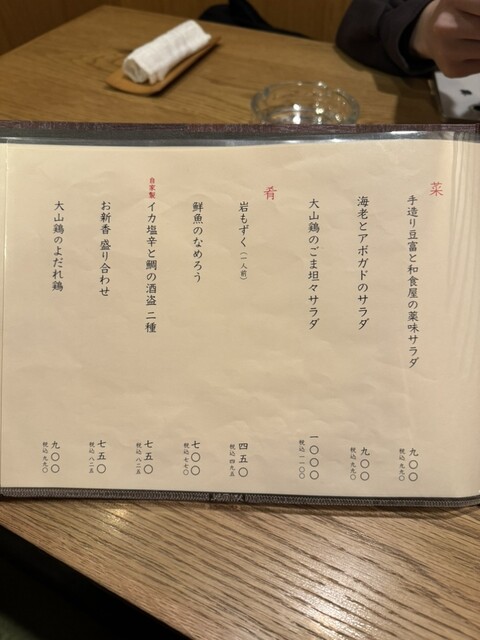 菜
手造り豆富と和食屋の薬味サラダ
九〇〇
税込 九九〇
海老とアボガドのサラダ
九〇〇
税込 九九〇
大山鶏のごま坦々サラダ
一〇〇〇
税込 一一〇〇
肴
岩もずく（一人前）
四五〇
税込 四九五
鮮魚のなめろう
七〇〇
税込 七七〇
自家製 イカ塩辛と鯛の酒盗 二種
七五〇
税込 八二五
お新香 盛り合わせ
七五〇
税込 八二五
大山鶏のよだれ鶏
九〇〇
税込 九九〇